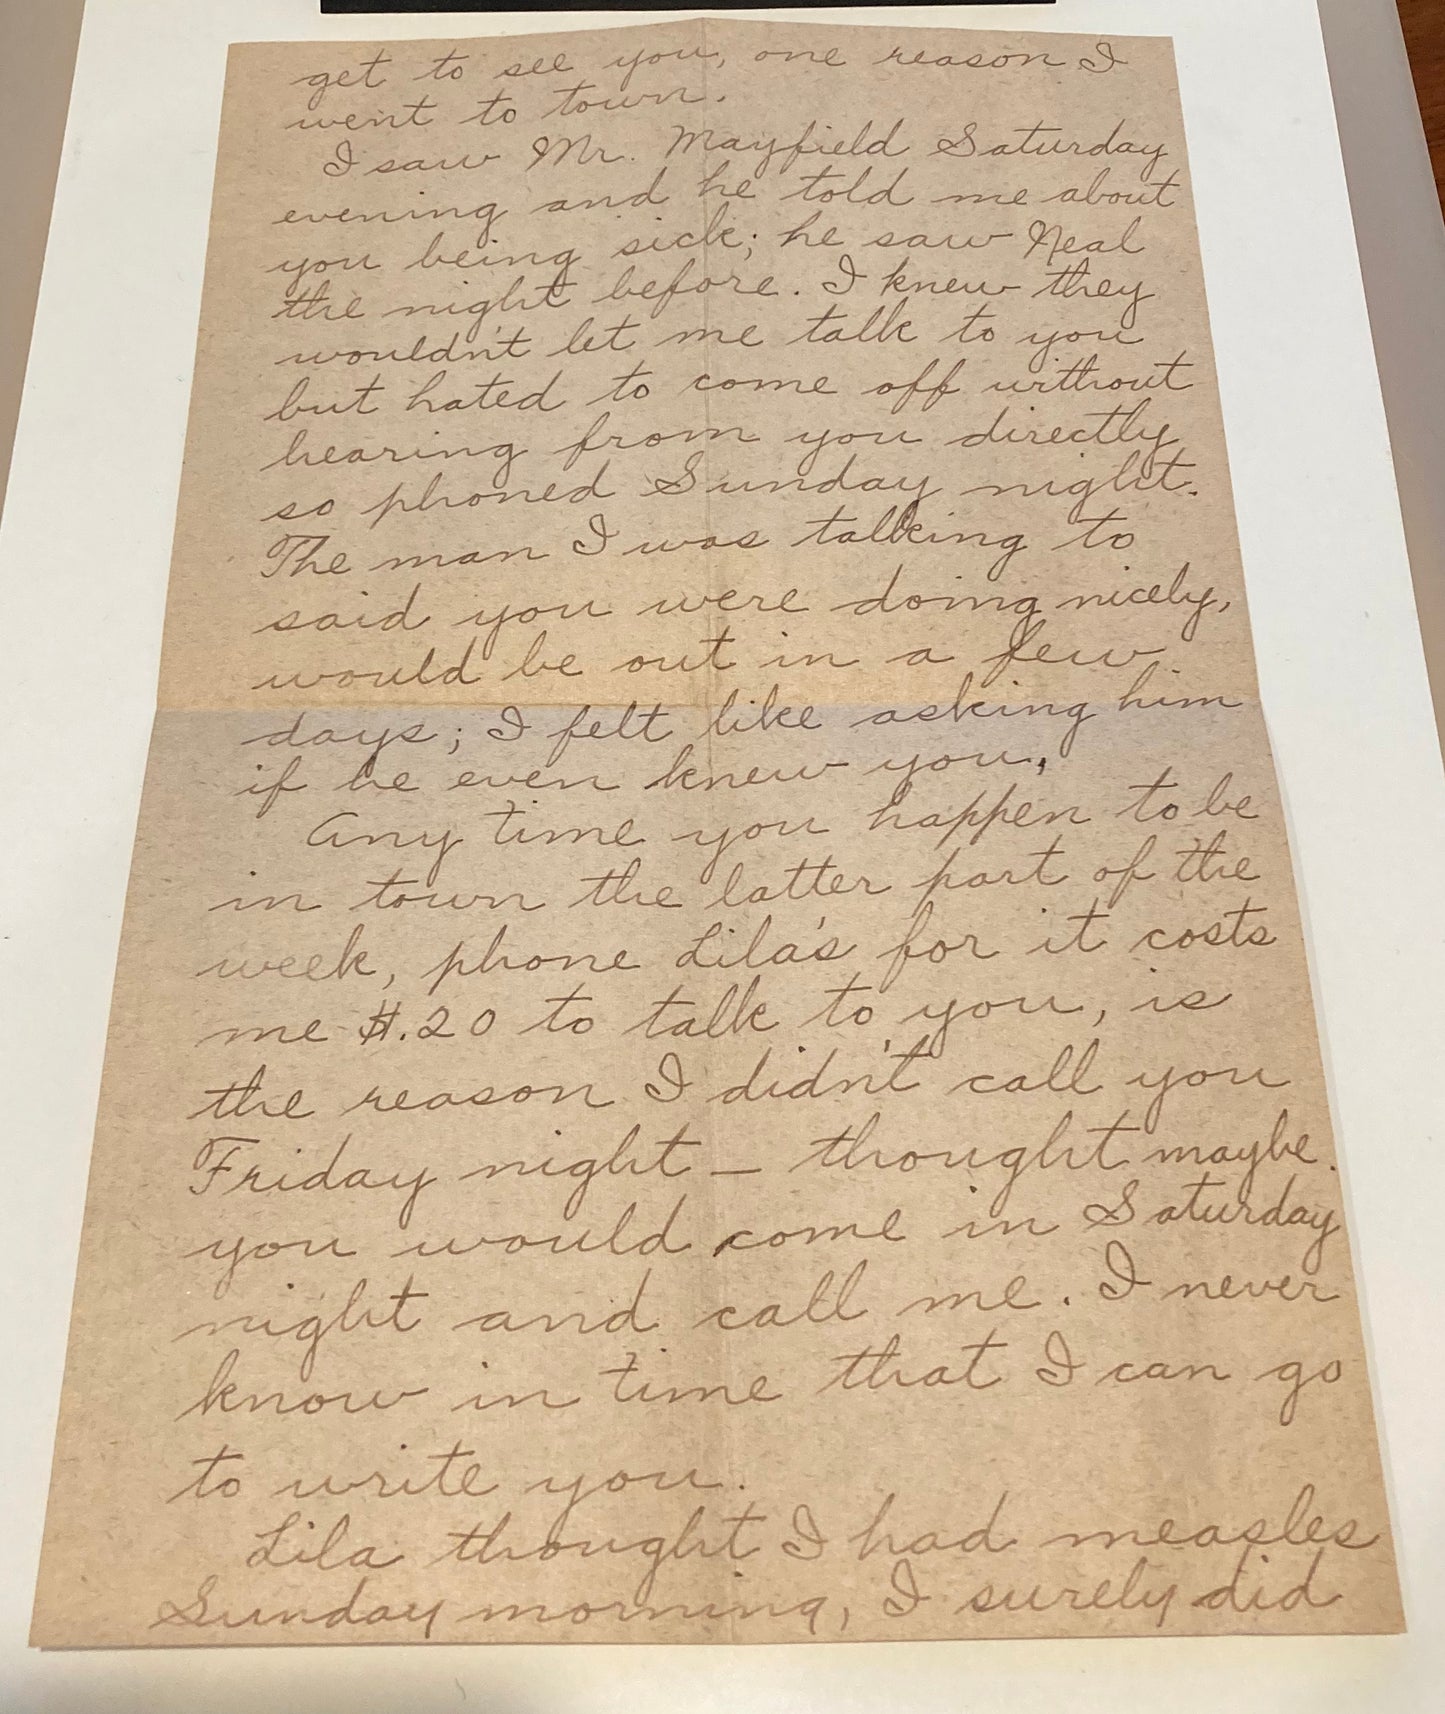 get to see you, one reason I
went to town.
I saw Mr. Mayfield Saturday
evening and he told me about
you being sick; he saw Neal
the night before. I knew they
wouldn't let me talk to you
but hated to come off without
hearing from you directly
so phoned Sunday night.
The man I was talking to
said you were doing nicely,
would be out in a few
days; I felt like asking him
if he even knew you.
Any time you happen to be
in town the latter part of the
week, phone Lila's for it costs
me $.20 to talk to you, is
the reason I didn't call you
Friday night — thought maybe
you would come in Saturday
night and call me. I never
know in time that I can go
to write you.
Lila thought I had measles
Sunday morning, I surely did